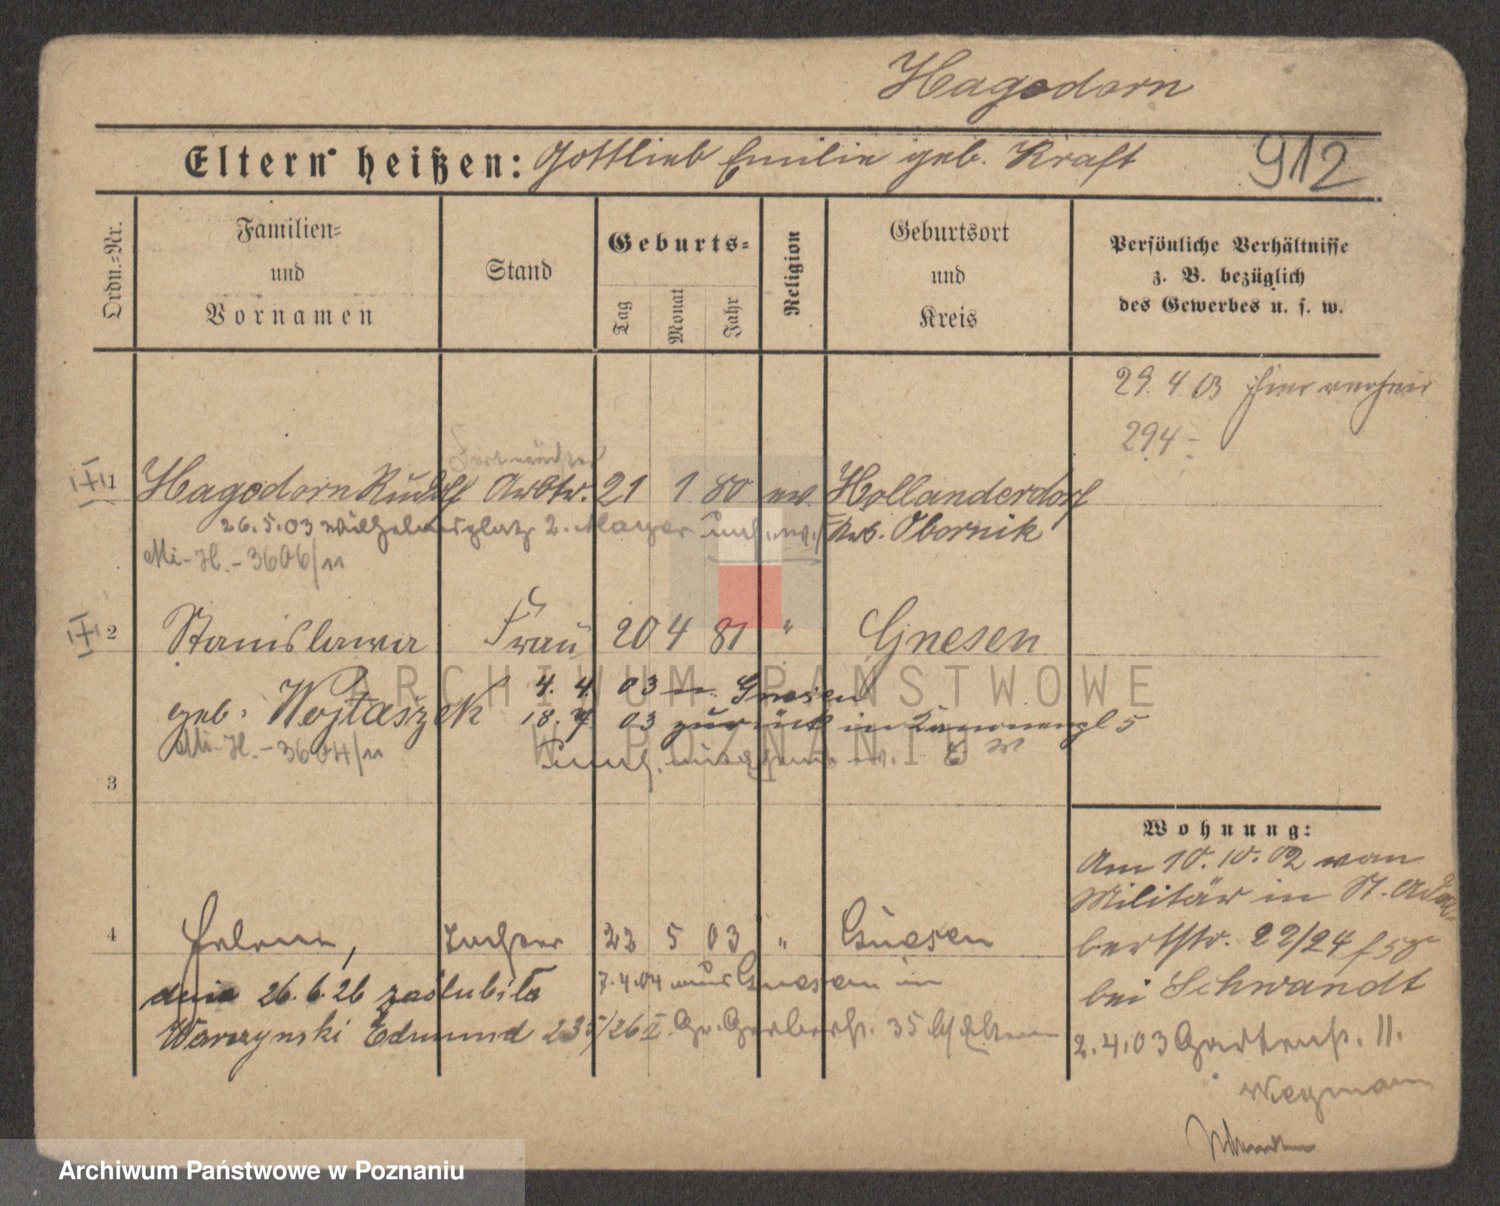 Hagedorn
Eltern heißen: Gottlieb Emilie geb. Kraft 912
Ordn.=Nr.
Familien=
und
Vornamen
Stand
Geburts=
Tag
Monat
Jahr
Religion
Geburtsort
und
Kreis
Persönliche Verhältnisse
z. B. bezüglich
des Gewerbes u. s. w.
29. 4 03 hier
294
1 Hagedorn Rudolf Arbtr. 21 1 80 ev. Hollanderdorf
26.5.03 Wilhelmsplatz 2. Mayer Obornik
Mi-H.-3606/11
2 Stanislawa Frau 20 4 81 " Gnesen
4. 4. 03 n. Gnesen
geb. Wojtaszek 18. 7. 03 zurück in Kanonenpl 5
Mi-H.-3604/11
3
Wohnung:
Am 10.10.02 vom
Militär in St. Adal-
bertstr. 22/24
bei Schwandt
2.4.03 Gartenstr. 11.
Wegmann
4 Helene, Tochter 22 5 03 " Gnesen
7.4.04 aus Gnesen in
dnia 26.6.26 zaślubiła
Warzynski Edmund 235/26 I. Gr. Gerberstr. 35 b/Eltern
ARCHIWUM PAŃSTWOWE
W POZNANIU
Archiwum Państwowe w Poznaniu